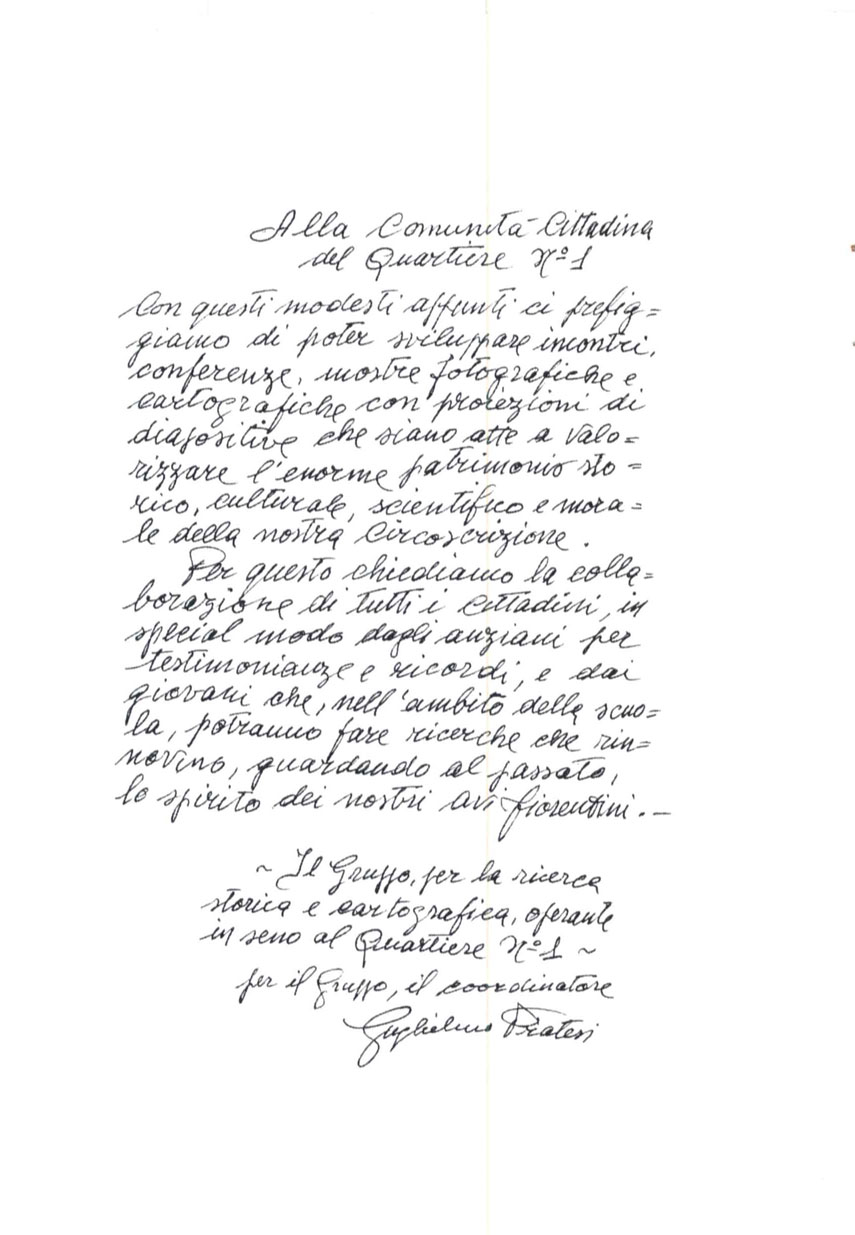 Alla Comunità Cittadina
del Quartiere Nº 1
Con questi modesti appunti ci prefig=
giamo di poter sviluppare incontri,
conferenze, mostre fotografiche e
cartografiche con proiezioni di
diapositive che siano atte a valo=
rizzare l'enorme patrimonio sto=
rico, culturale, scientifico e mora=
le della nostra Circoscrizione.
Per questo chiediamo la colla=
borazione di tutti i cittadini, in
special modo dagli anziani per
testimonianze e ricordi, e dai
giovani che, nell'ambito della scuo=
la, potranno fare ricerche che rin=
novino, guardando al passato,
lo spirito dei nostri avi fiorentini.—
~ Il Gruppo, per la ricerca
storica e cartografica, operante
in seno al Quartiere Nº 1 ~
per il Gruppo, il coordinatore
Guglielmo Pratesi